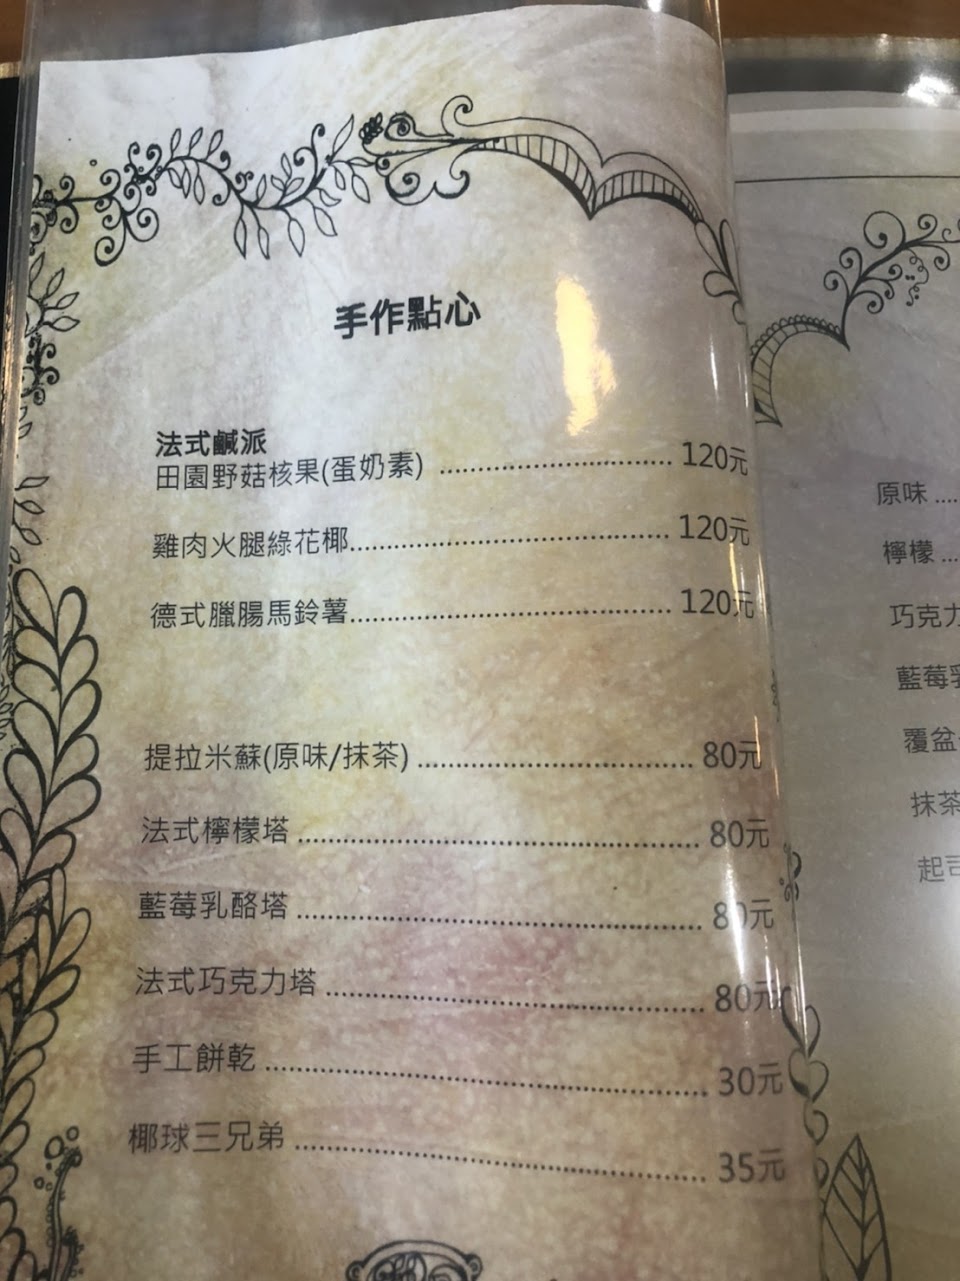 手作點心
法式鹹派
田園野菇核果(蛋奶素) ........................ 120元
雞肉火腿綠花椰.................................. 120元
德式臘腸馬鈴薯.................................. 120元
提拉米蘇(原味/抹茶) ............................. 80元
法式檸檬塔 .......................................... 80元
藍莓乳酪塔 .......................................... 80元
法式巧克力塔 ....................................... 80元
手工餅乾 ............................................. 30元
椰球三兄弟 .......................................... 35元
原味 ....
檸檬 ...
巧克力
藍莓乳
覆盆
抹茶
起司